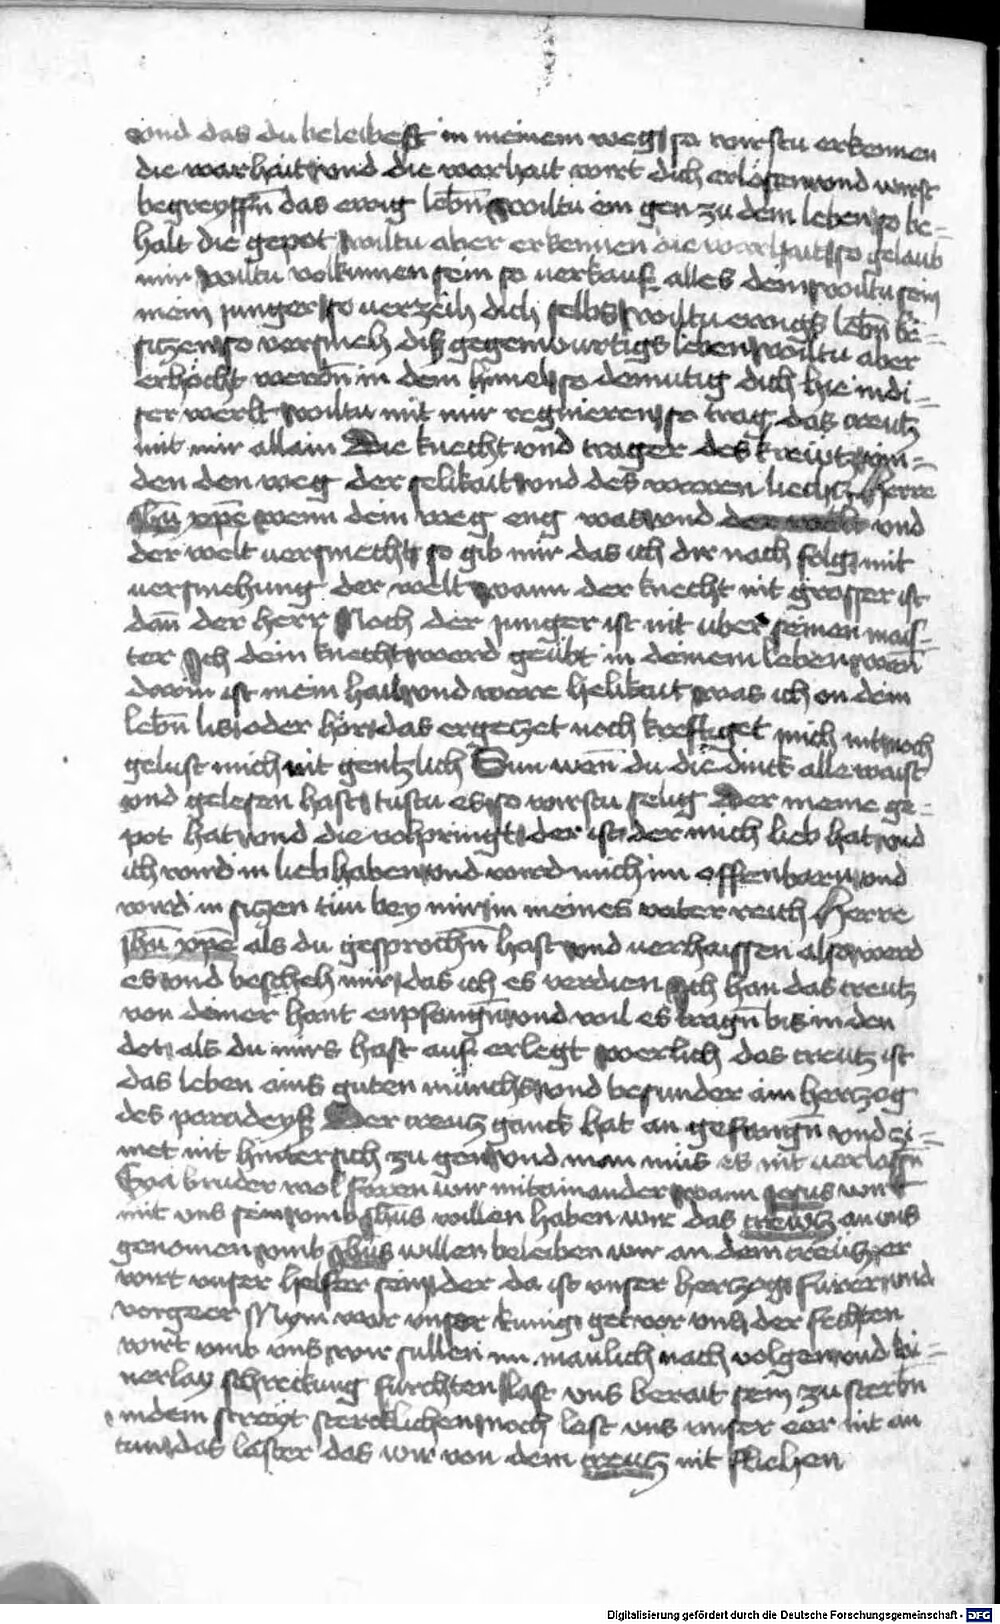 vnd das du beleibest in meinem weg so wirstu erkennen
die warhait vnd die warhait wirt dich erlosen vnd wirst
begreyffn̄ das ewig lebn̄ wiltu ein gen zu dem leben so be=
halt die gepot wiltu aber erkennen die warhait so gelaub
mir wiltu volkumen sein so verkauf alles dein wiltu sein
mein junger so verzeih dich selbs wiltu ewigs lebn̄ be=
siczen so versmeh diß gegenwurtigs leben wiltu aber
erhocht werdn̄ in dem himel so demutig dich hie in di=
ser werlt wiltu mit mir regnieren so trag das creutz
mit mir allain Die knecht vnd trager des kreutz vin=
den den weg der selikait vnd des waren liechtz Herre
ihū xpē wenn dein weg eng was vnd der welt vnd
der welt versmecht so gib mir das ich dir nach folg mit
versmehung der welt wann der knecht nit grosser ist
dan̄ der herr Noch der junger ist nit uber seinen mais=
ter Ich dein knecht werd geübt in deinem leben wan̄
darin ist mein hail vnd ware helikait was ich on dein
lebn̄ lis oder hör das ergetzet noch kreftiget mich nit noch
gelust mich nit gentzlich Sun wen̄ du die dinck alle waist
vnd gelesen hast tustu es so wirstu selig Der meine ge=
pot hat vnd die volpringt der ist der mich lieb hat vnd
ich wird in lieb haben vnd wird mich im offenbarn vnd
wird in sitzen tun bey mir in meines vater reich Herre
ihū xpē als du gesprochn̄ hast vnd verhaissen also werd
es vnd bescheh mir das ich es verdien Ich han das creutz
von deiner hant enpfangn̄ vnd wil es tragn̄ bis in den
dot als du mirs hast auf erlegt werlich das creutz ist
das leben ains guten münchs vnd besunder ain hertzog
des paradeyß Der creutz ganck hat an gefangn̄ vnd zi=
met nit hinter sich zu gen vnd man mus es nit verlassn̄
Eya bruder wol faren wir mitainander wann jesus wirt
mit vns sein vmb ihūs willen haben wir das creutz an vns
genomen vmb ihūs willen beleiben wir an dem creutz er
wirt vnser helfer sein der da ist vnser hertzog fürer vnd
vorgeer Nym war vnser kunig get vor vns der fechten
wirt vmb vns wir sullen im manlich nach volgen vnd kai=
nerlay schreckung furchten last vns berait sein zu sterbn̄
in dem streyt stercklichen noch last vns vnser eer nit an
tun das laster das wir von dem creutz nit fliehen
Digitalisierung gefördert durch die Deutsche Forschungsgemeinschaft - DFG